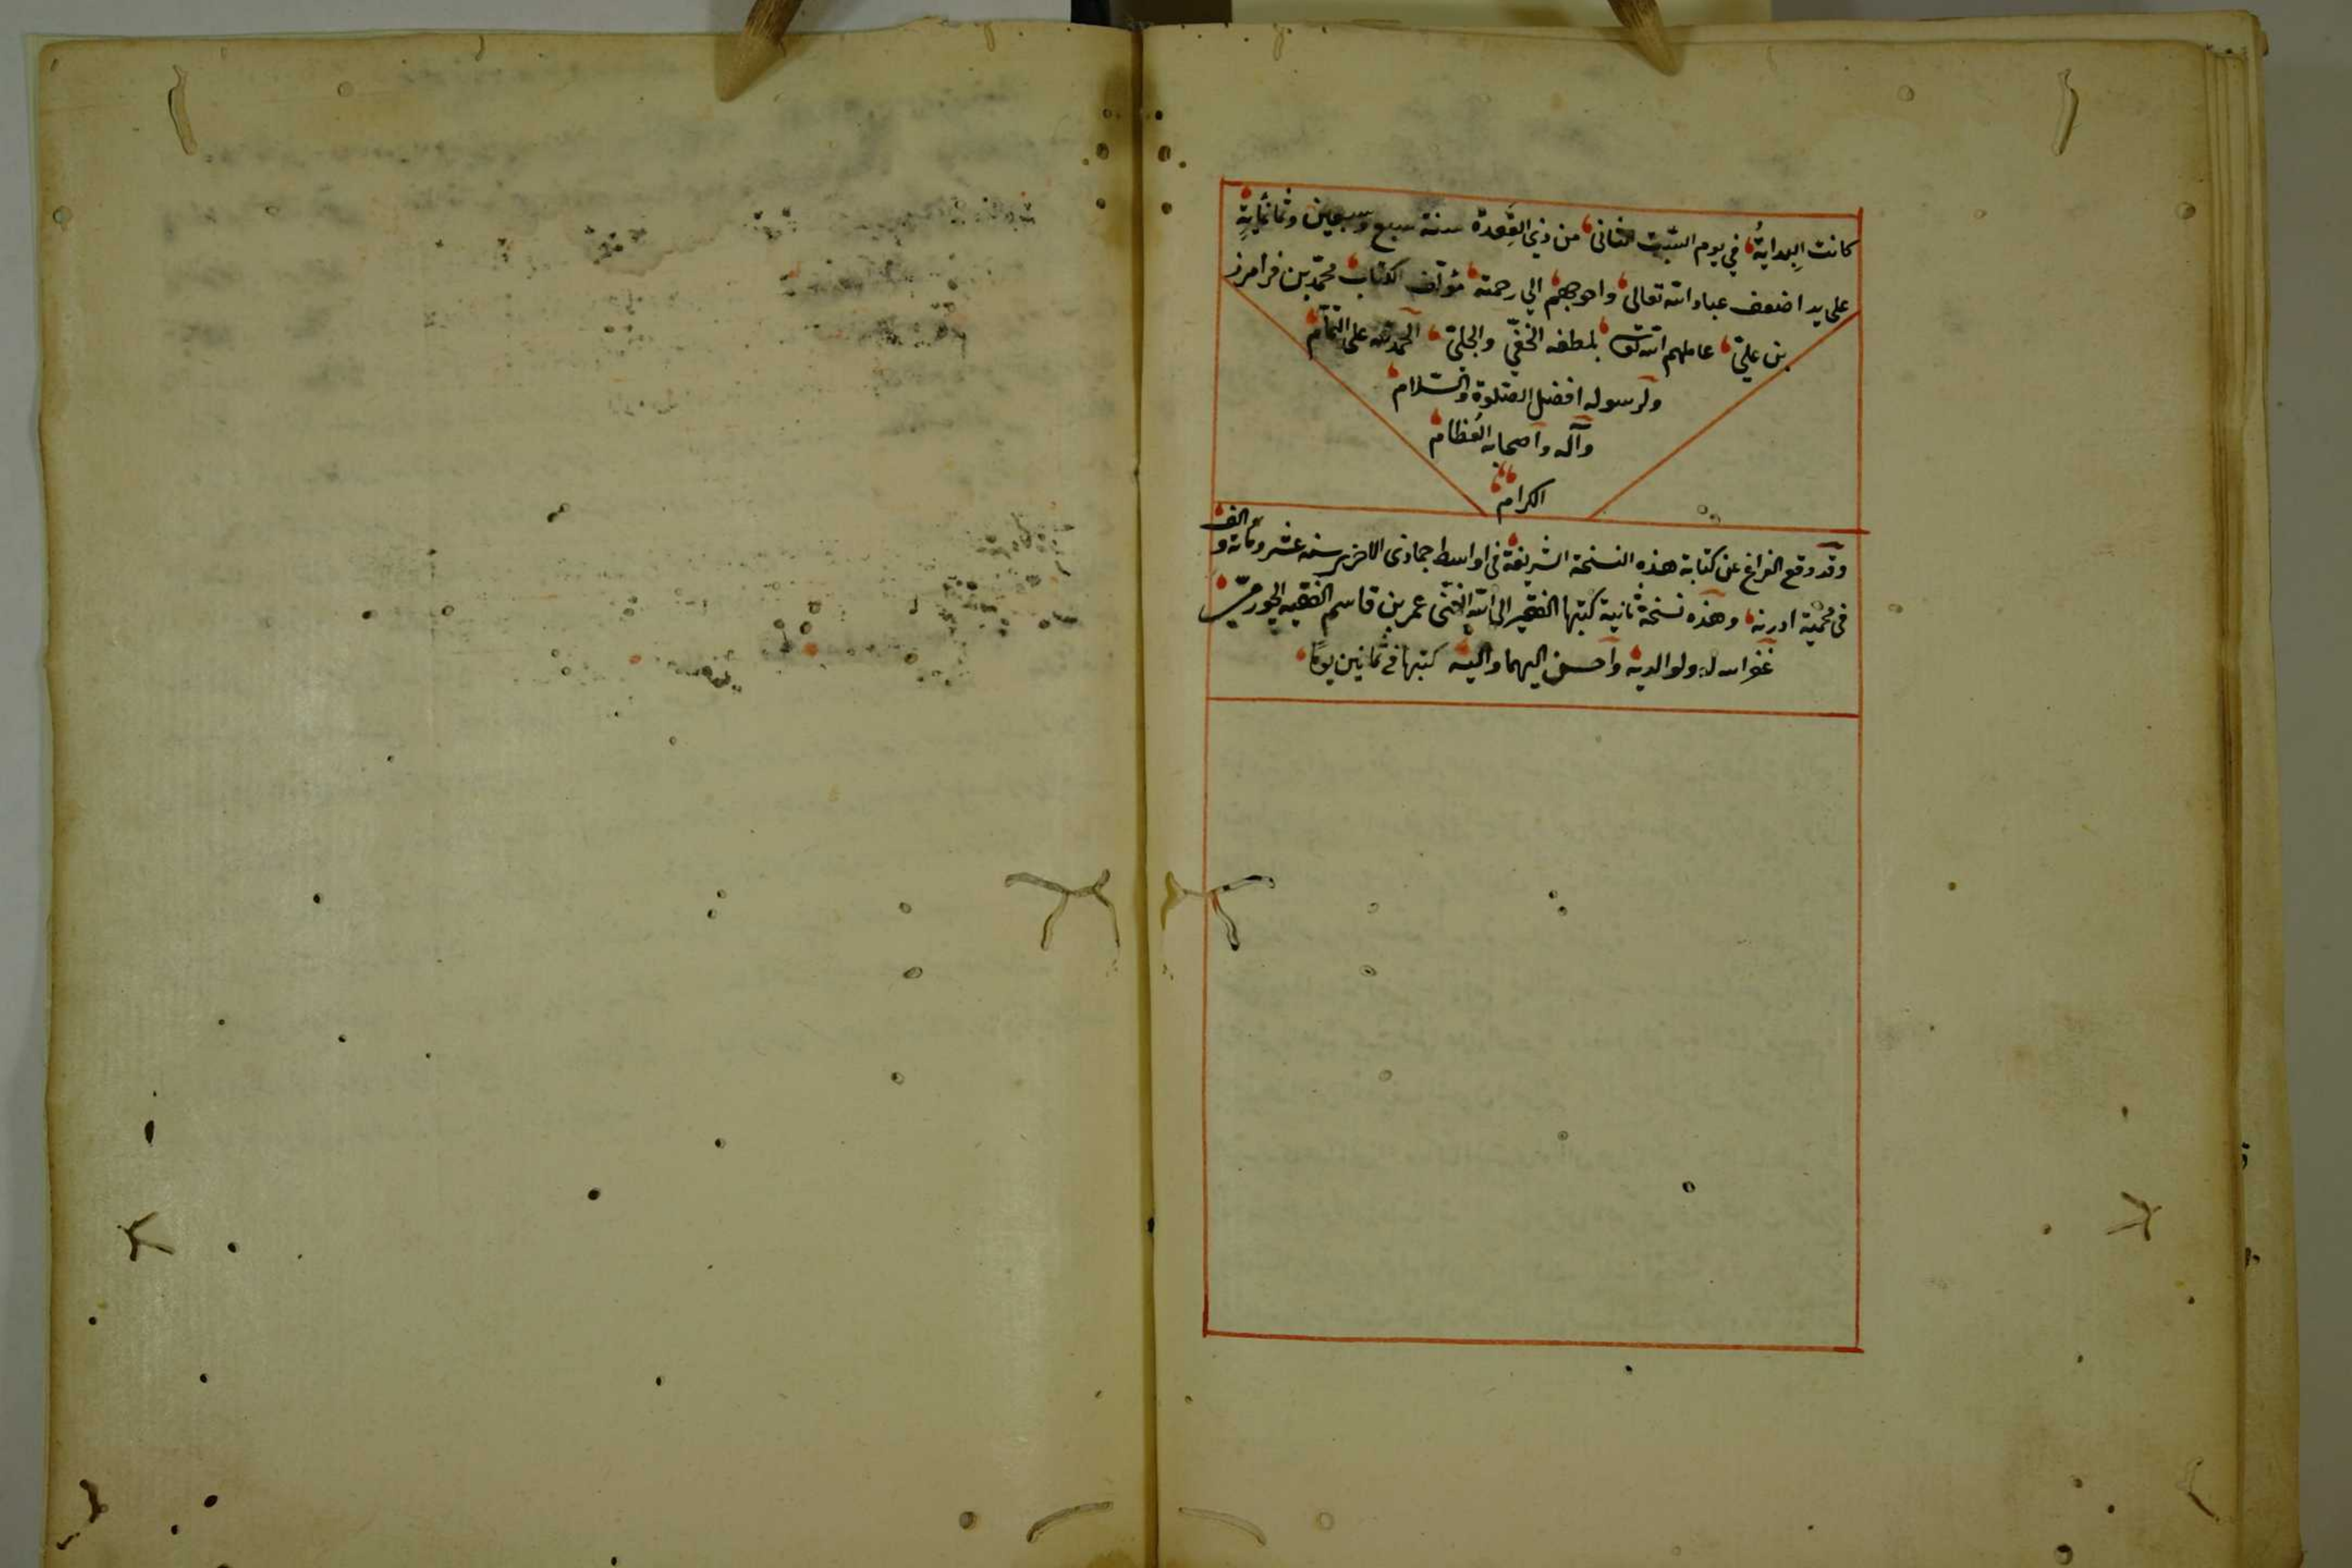 كانت البدايةُ في يوم السّبت الثانى من ذي القعدة سنة سبع وسبعين وثمانمأية
على يد اضعف عباد الله تعالى واحوجهم الي رحمته مؤلّف الكتاب محمّد بن فرامرز
بن عليّ عاملهم الله بلطفه الخفيّ والجليّ الحمد لله على التمام
ولرسوله افضل الصّلوة والسّلام
وآله واصحابه العظام
الكرام
وقد وقع الفراغ عن كتابة هذه النسخة الشريفة فى اواسط جمادى الاخر سنه عشر ومائة والف
فى محمية ادرنه وهذه نسخة ثانية كتبها الفقير الى الله الغنى عمر بن قاسم الفقيه
غفر الله له ولوالديه وأحسن اليهما واليه كتبها فى ثمانين يومًا